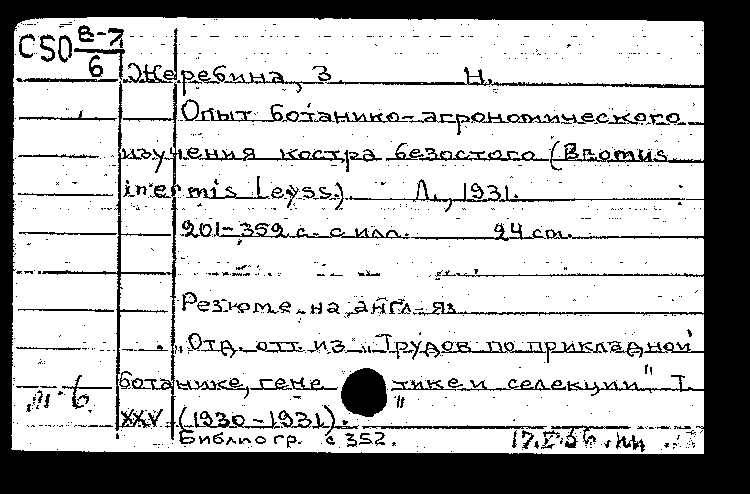 C50 В-7
6
Жеребина, З. Н.
Опыт ботанико-агрономического
изучения костра безостого (Bromus
inermis Leyss). Л., 1931.
201-352 с. с илл. 24 ст.
Резюме на англ. яз.
"Отд. отт. из "Трудов по прикладной
ботанике, гене тике и селекции" Т.
XXV (1930-1931)."
Библиогр. с 352.